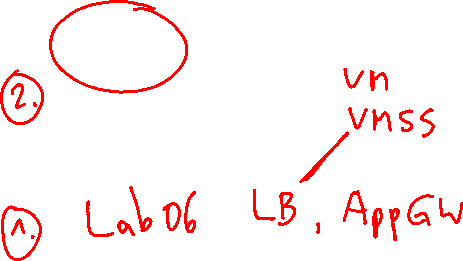 vm
2. vmss
1. Lab06 LB, AppGW